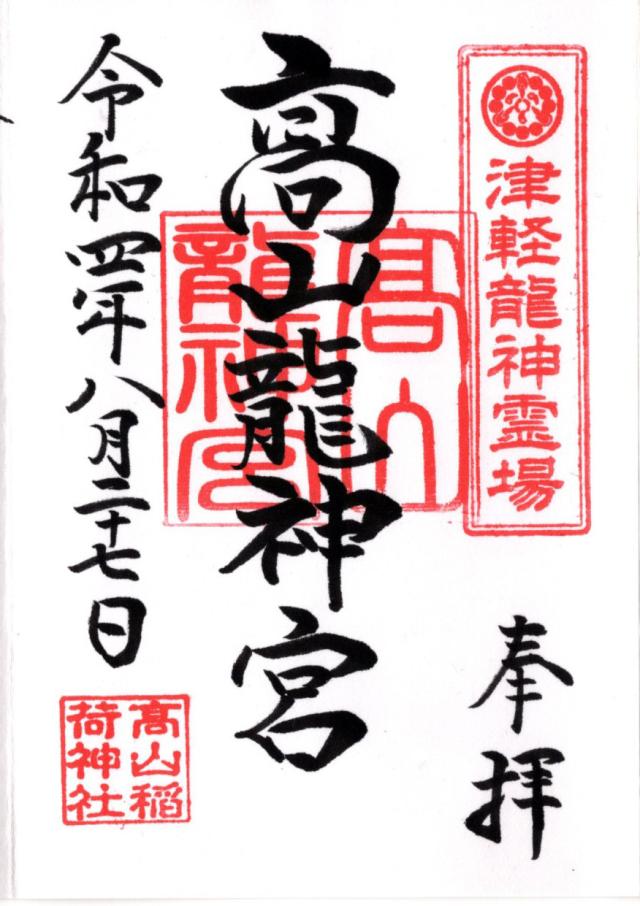 津軽龍神霊場
奉拝
髙山龍神宮
髙山
龍神宮
令和四年八月二十七日
髙山稲
荷神社